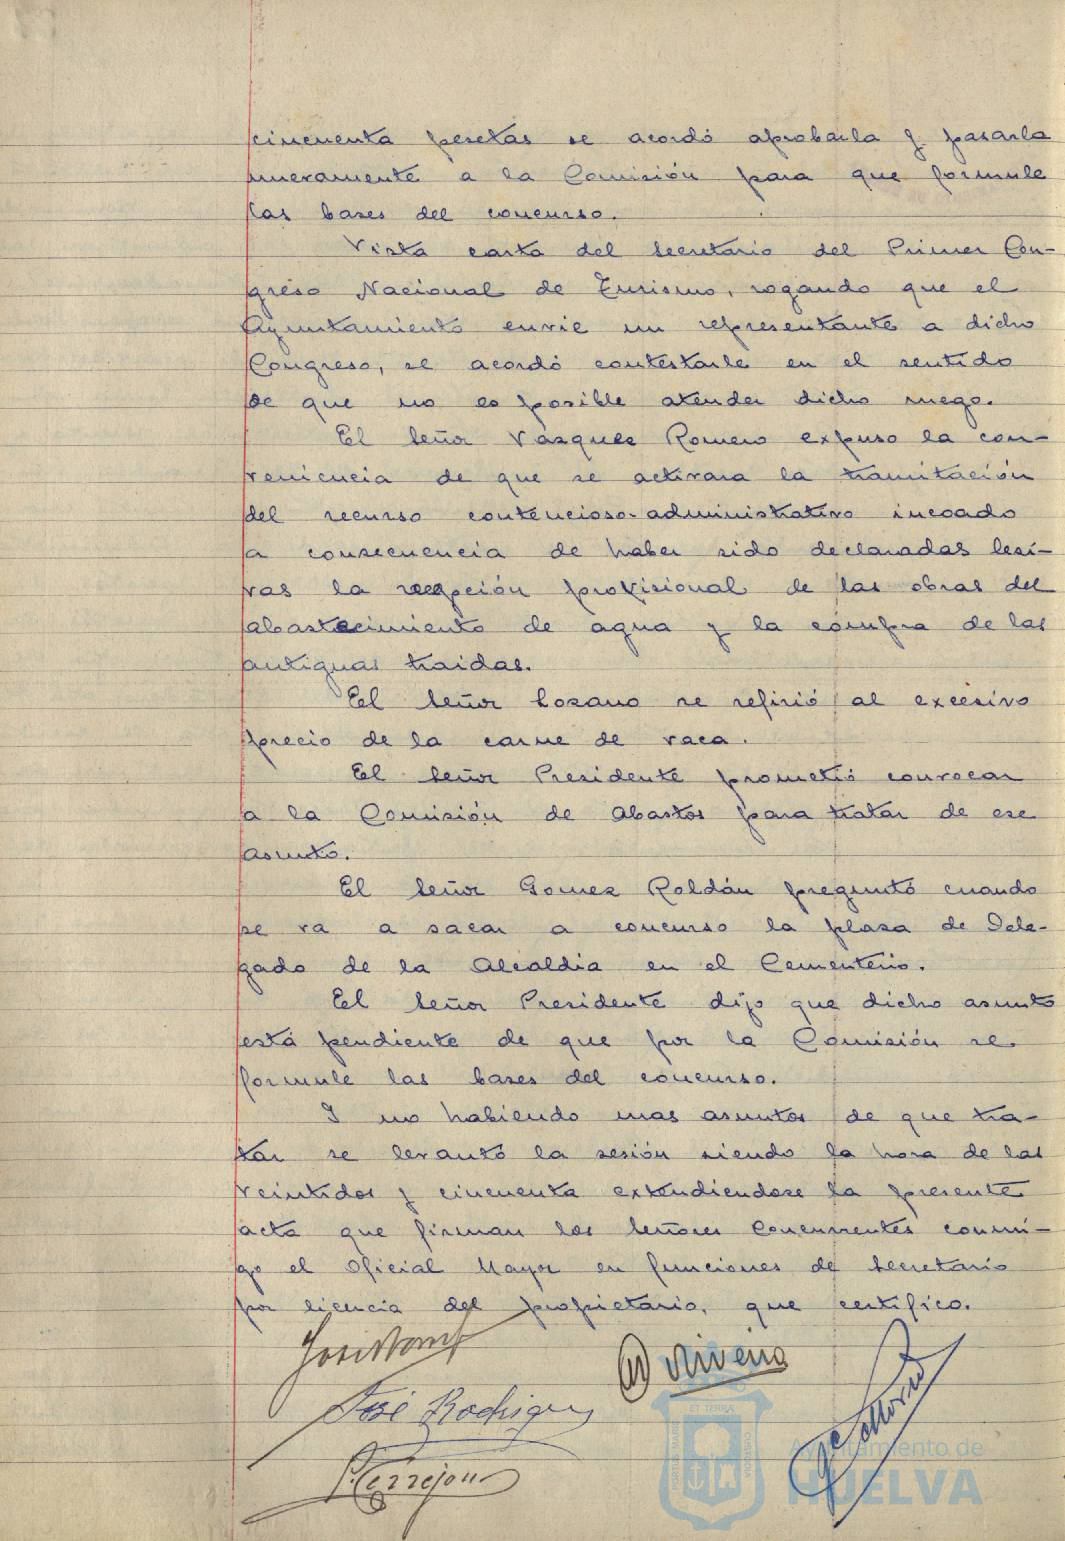 cincuenta pesetas se acordó aprobarla y pasarla
nuevamente a la Comisión para que formule
las bases del concurso.
Vista carta del Secretario del Primer Con-
greso Nacional de Turismo, rogando que el
Ayuntamiento envie un representante a dicho
Congreso, se acordó contestarle en el sentido
de que no es posible atender dicho ruego.
El Señor Vázquez Romero expuso la con-
veniencia de que se activara la tramitación
del recurso contencioso-administrativo incoado
a consecuencia de haber sido declaradas lesi-
vas la recepción provisional de las obras del
abastecimiento de agua y la compra de las
antiguas traidas.
El Señor Lozano se refirió al excesivo
precio de la carne de vaca.
El Señor Presidente prometió convocar
a la Comisión de Abastos para tratar de ese
asunto.
El Señor Gomez Roldán preguntó cuando
se va a sacar a concurso la plaza de Dele-
gado de la Alcaldia en el Cementerio.
El Señor Presidente dijo que dicho asunto
está pendiente de que por la Comisión se
formule las bases del concurso.
Y no habiendo mas asuntos de que tra-
tar se levantó la sesión siendo la hora de las
veintidos y cincuenta extendiendose la presente
acta que firman los Señores Concurrentes conmi-
go el Oficial Mayor en funciones de Secretario
por licencia del propietario, que certifico.
José Rodriguez
P. Cerrejon
Ayuntamiento de
HUELVA